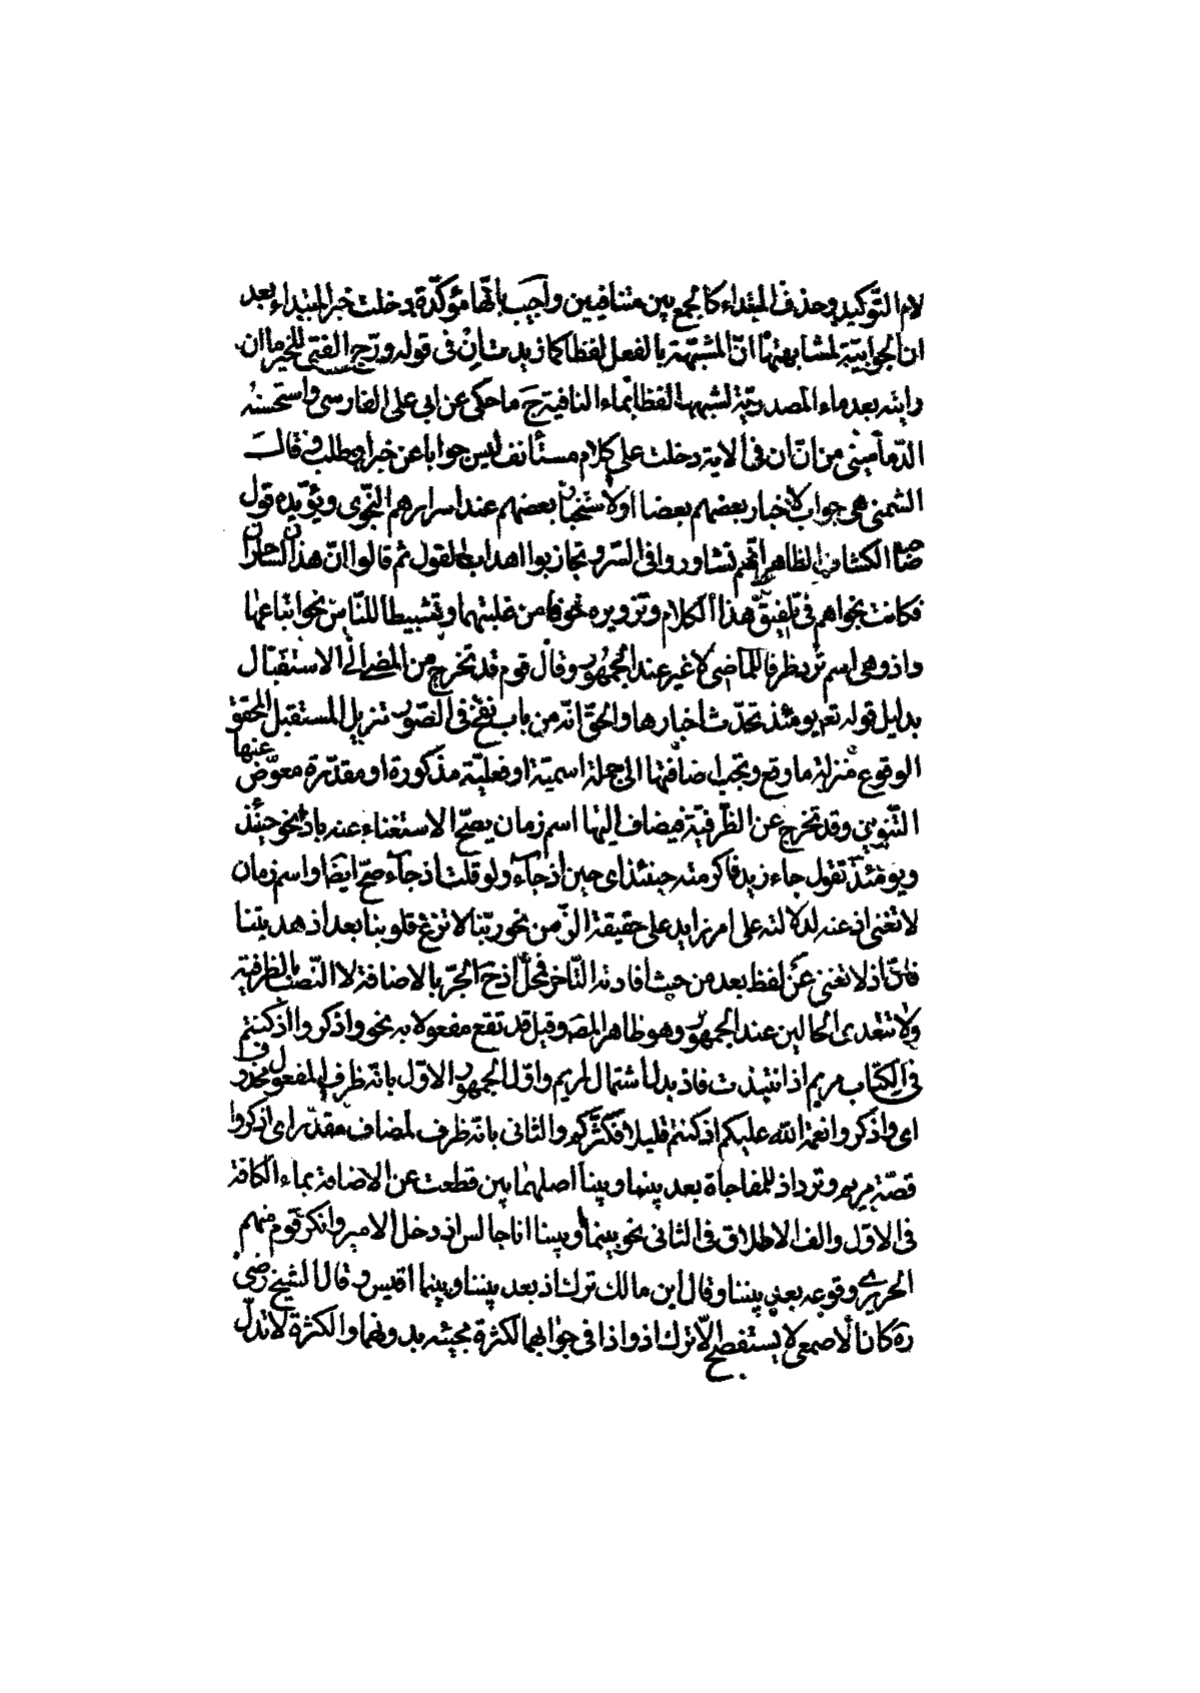 لام التّوكيد وحذف المبتداء كالجمع بين متنافيين واجيب بانّها مؤكّدة دخلت خبر المبتداء بعد
ان الجوابيّة لمشابهتها انّ المشبّهة بالفعل لفظا كما زيدت ان فى قوله ورجّ الفتى للخير ما ان
رايته بعد ماء المصدريّة لشبهها لفظا بماء النافية ج ما حكى عن ابى على الفارسى واستحسنه
الدّمامينى من انّ ان فى الاية دخلت على كلام مستأنف ليس جوابا عن خبر او طلب وقالـ
الشمنى هى جواب لاخبار بعضهم بعضا او لاستخبار بعضهم عند اسرارهم النّجوى ويؤيّده قول
صاحب الكشاف الظاهر انّهم تشاوروا فى السّر وتجاذبوا اهداب القول ثم قالوا انّ هذان لساحران
فكانت نجواهم فى تلفيق هذا الكلام وتزويره خوفا من غلبتهما وتثبيطا للنّاس نحو اتباعها
واذ وهى اسم ترد ظرفا للماضى لا غير عند الجمهور وقال قوم قد تخرج من المضى الى الاستقبال
بدليل قوله تع يومئذ تحدّث اخبارها والحقّ انّه من باب نفخ فى الصّور تنزيل المستقبل المحقق
الوقوع منزلة ما وقع وتجب اضافتها الى جملة اسميّة او فعليّة مذكورة او مقدّرة معوّض عنها
التّنوين وقد تخرج عن الظّرفيّة فيضاف اليها اسم زمان يصحّ الاستغناء عنه باذ نحو حينئذ
ويومئذ تقول جاء زيد فاكرمته حينئذ اى حين اذ جاء ولو قلت اذ جاء صحّ ايضا واسم زمان
لا تغنى اذ عنه لدلالته على امر زايد على حقيقة الزّمن نحو ربّنا لا تزغ قلوبنا بعد اذ هديتنا
فانّ اذ لا تغنى عن لفظ بعد من حيث افادته التّاخر فمحلّ اذ ح الجرّ بالاضافة لا النّصب بالظرفية
ولا تتعدى الحالين عند الجمهور وهو ظاهر المصـ وقيل قد تقع مفعولا به نحو واذكروا اذ كنتم
فى الكتاب مريم اذ انتبذت فاذ بدل اشتمال لمريم واوّل الجمهور الاوّل بانّه ظرف لمفعول محذوف
اى واذكروا نعمة الله عليكم اذ كنتم قليلا فكثّركم والثانى بانّه ظرف لمضاف مقدّر اى اذكروا
قصّة مريم وترد اذ للمفاجاة بعد بينما وبينا اصلهما بين قطعت عن الاضافة بماء الكافّة
فى الاوّل والف الاطلاق فى الثانى نحو بينما وبينا انا جالس اذ دخل الامير وانكر قوم منهم
الحريرى وقوعه بعد بينا وقال ابن مالك ترك اذ بعد بينا وبينما اقيس وقال الشيخ رضى
ره كان الاصمعى لا يستفصح الّا ترك اذ واذا فى جوابهما لكثرة مجيئه بدونهما والكثرة لا تدلّ